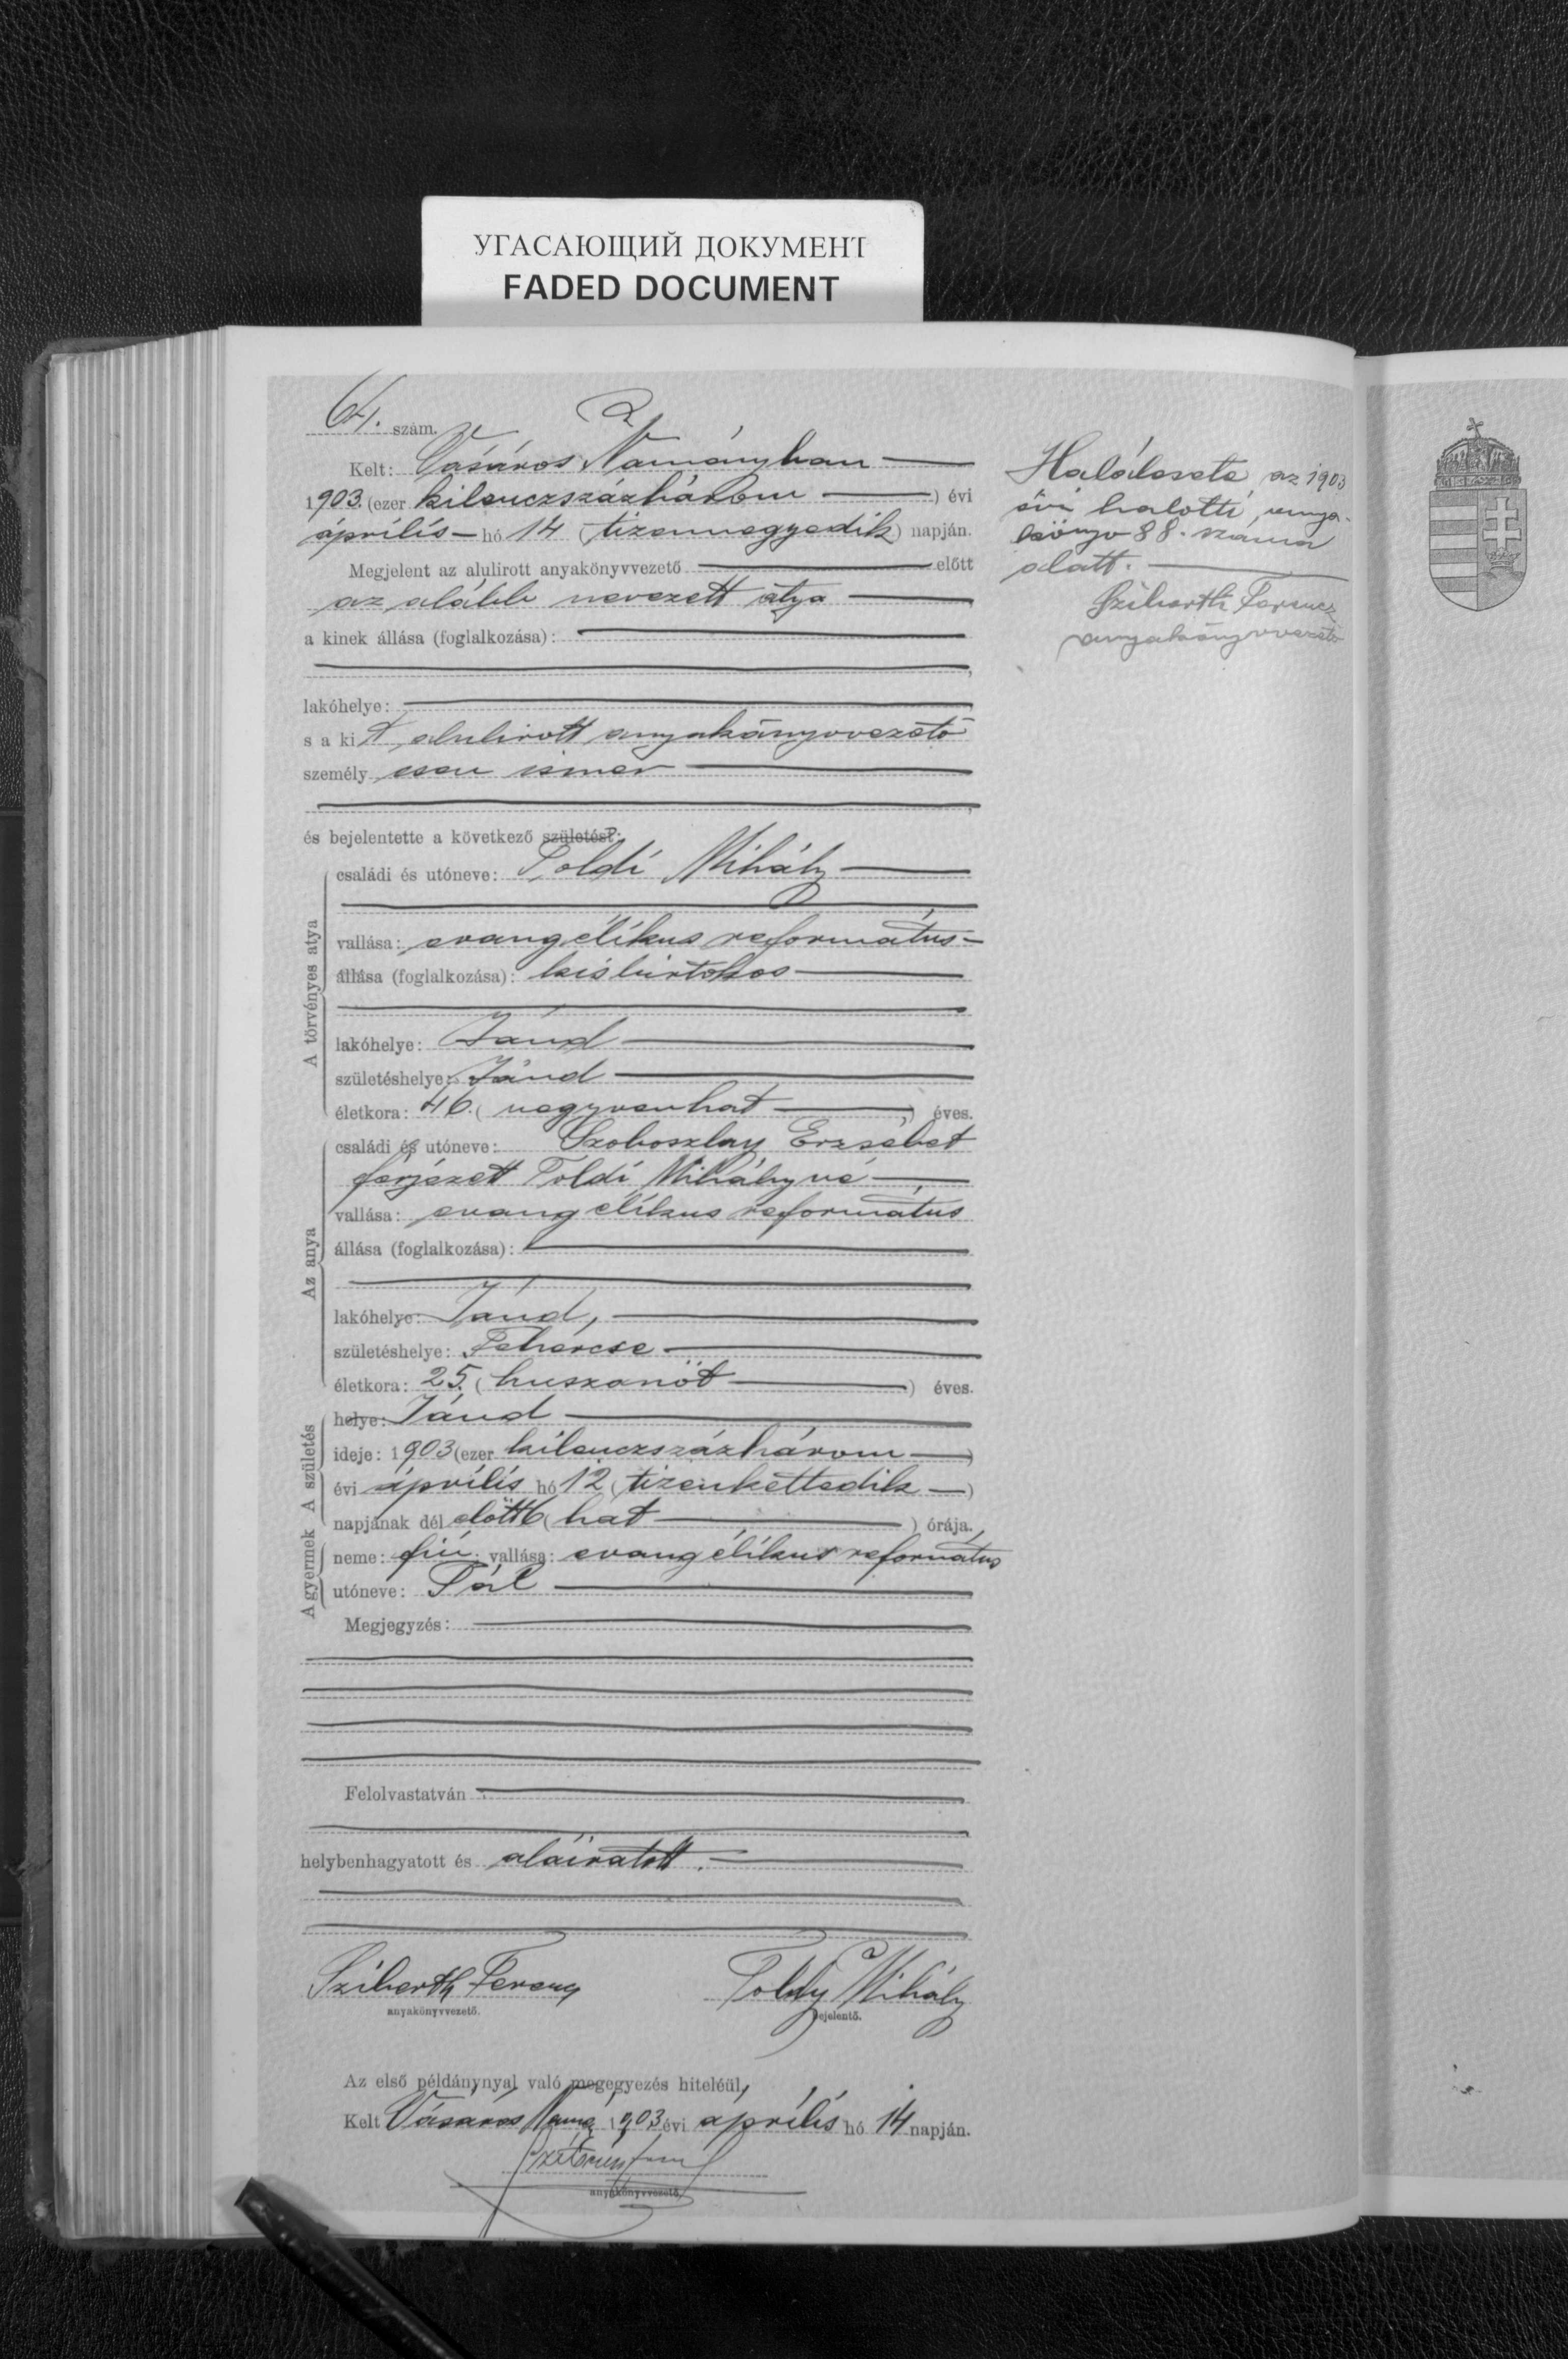 УГАСАЮЩИЙ ДОКУМЕНТ
FADED DOCUMENT
61. szám.
Kelt: Vásáros Naményban
1903. (ezer kilenczszázhárom) évi
április hó 14 (tizennegyedik) napján.
Megjelent az alulirott anyakönyvvezető előtt
az alább nevezett atya
a kinek állása (foglalkozása):
lakóhelye:
s a kit alulirott anyakönyvvezető
személyesen ismer
és bejelentette a következő születést:
A törvényes atya
családi és utóneve: Toldi Mihály
vallása: evangélikus református
állása (foglalkozása): kisbirtokos
lakóhelye: Jánd
születéshelye: Jánd
életkora: 46. (negyvenhat) éves.
Az anya
családi és utóneve: Szoboszlay Erzsébet
férjezett Toldi Mihályné
vallása: evangélikus református
állása (foglalkozása):
lakóhelye: Jánd,
születéshelye: Fehércse
életkora: 25. (huszonöt) éves.
A születés
helye: Jánd
ideje: 1903 (ezer kilenczszázhárom)
évi április hó 12 (tizenkettedik)
napjának dél előtt 6 (hat) órája.
A gyermek
neme: fiú vallása: evangélikus református
utóneve: Pál
Megjegyzés:
Felolvastatván
helybenhagyatott és aláiratott.
Sziberth Ferencz Toldy Mihály
anyakönyvvezető. bejelentő.
Az első példánynyal való megegyezés hiteléül,
Kelt Vásáros Namé 1903 évi április hó 14 napján.
anyakönyvvezető.
Halálesete az 1903
évi halotti anya-
könyv 88. száma
alatt.
Sziberth Ferencz
anyakönyvvezető